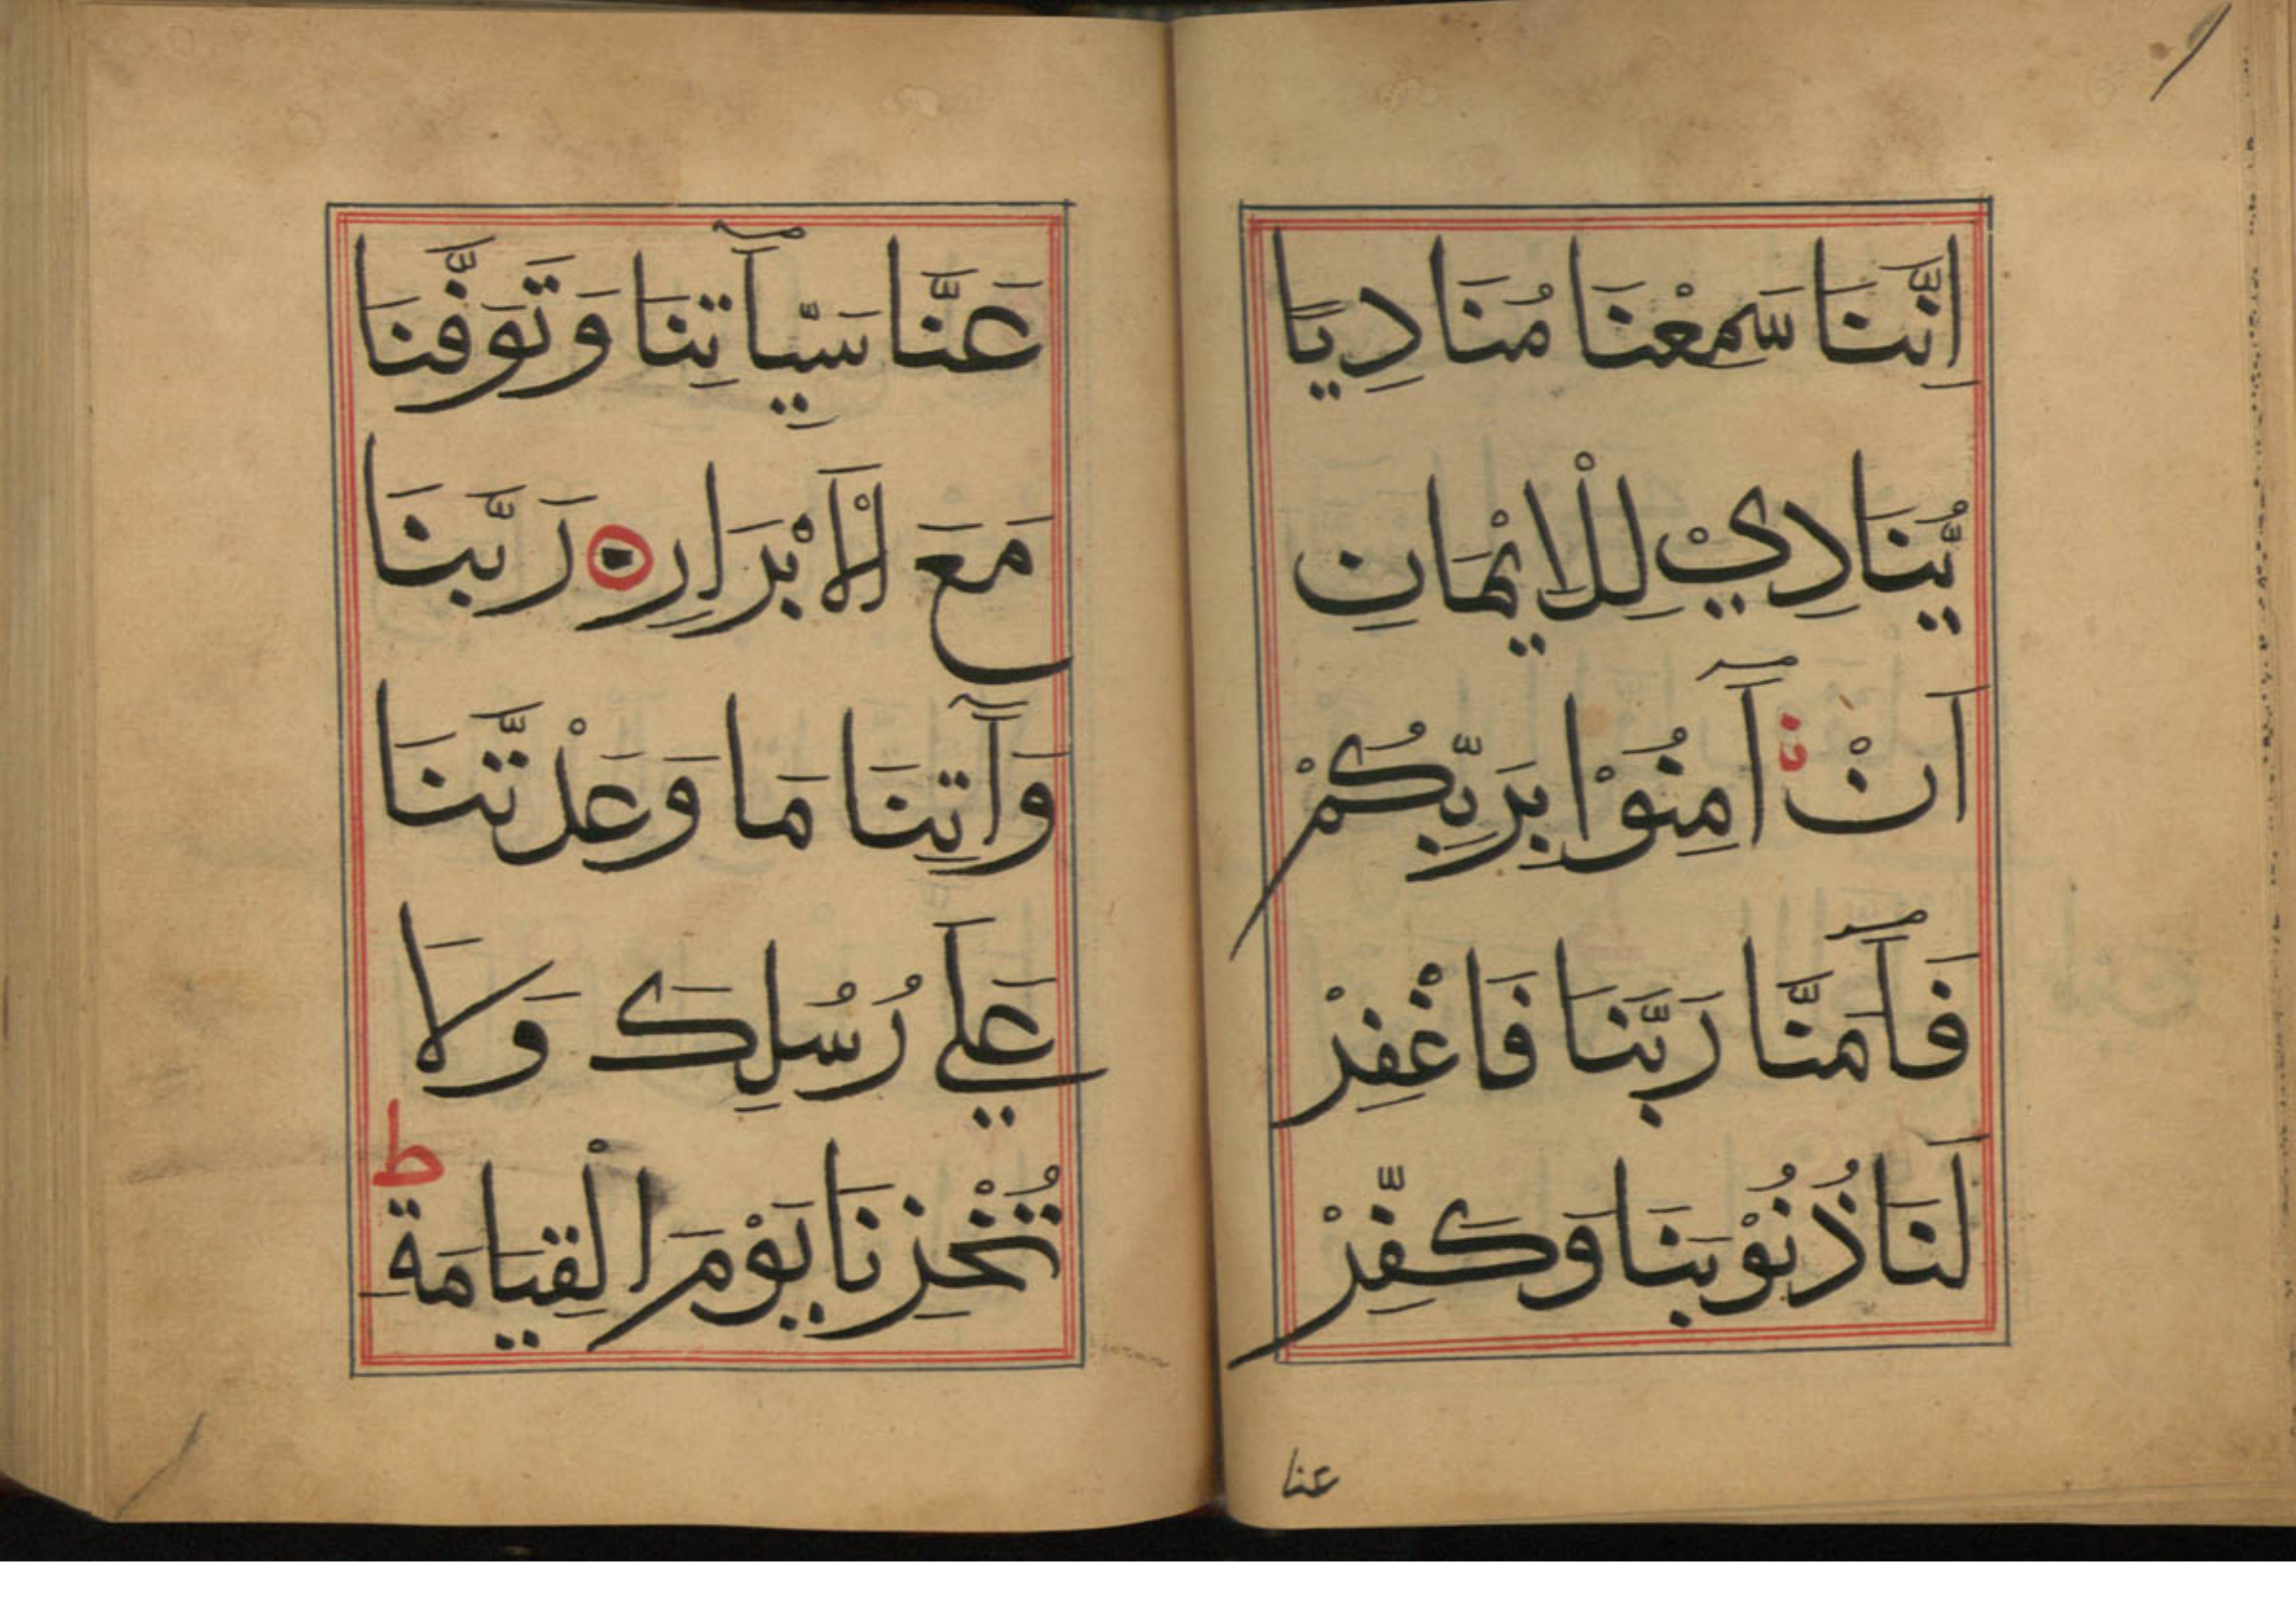 اِنَّنَا سَمِعْنَا مُنَادِيًا
يُّنَادِيْ لِلْاِيْمَانِ
اَنْ اٰمِنُوْا بِرَبِّكُمْ
فَاٰمَنَّا رَبَّنَا فَاغْفِرْ
لَنَا ذُنُوْبَنَا وَكَفِّرْ
عنا
عَنَّا سَيِّاٰتِنَا وَتَوَفَّنَا
مَعَ الْاَبْرَارِ ه رَبَّنَا
وَآتِنَا مَا وَعَدْتَّنَا
عَلَي رُسُلِكَ وَلَا
تُخْزِنَا يَوْمَ الْقِيَامَةِ ط